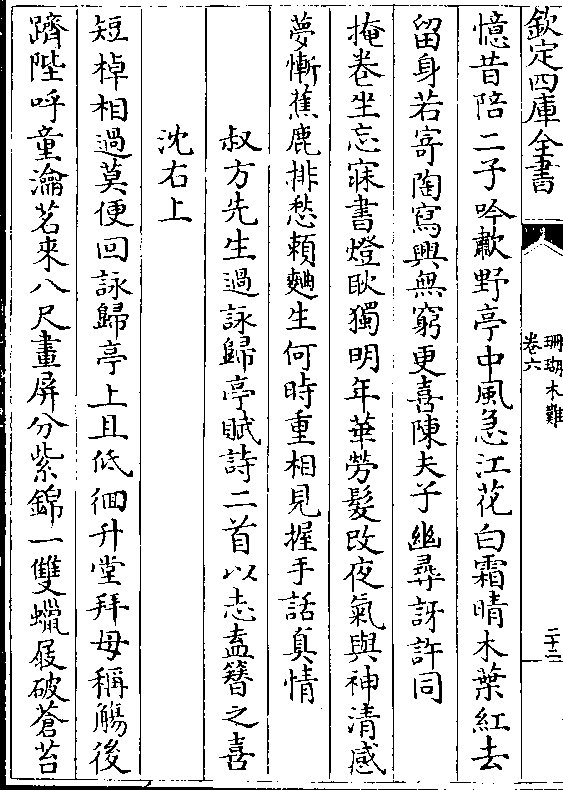 欽定四庫全書
珊瑚木難
卷六
二十二
憶昔陪二子吟歗野亭中風急江花白霜晴木葉紅去
留身若寄陶寫興無窮更喜陳夫子幽尋訝許同
掩卷坐忘寐書燈耿獨明年華勞髮改夜氣與神清感
夢慚蕉鹿排愁賴麯生何時重相見握手話真情
叔方先生過詠歸亭賦詩二首以志盍簪之喜
沈右上
短棹相過莫便回詠歸亭上且低徊升堂拜母稱觴後
躋陛呼童瀹茗來八尺畫屏分紫錦一雙蠟屐破蒼苔